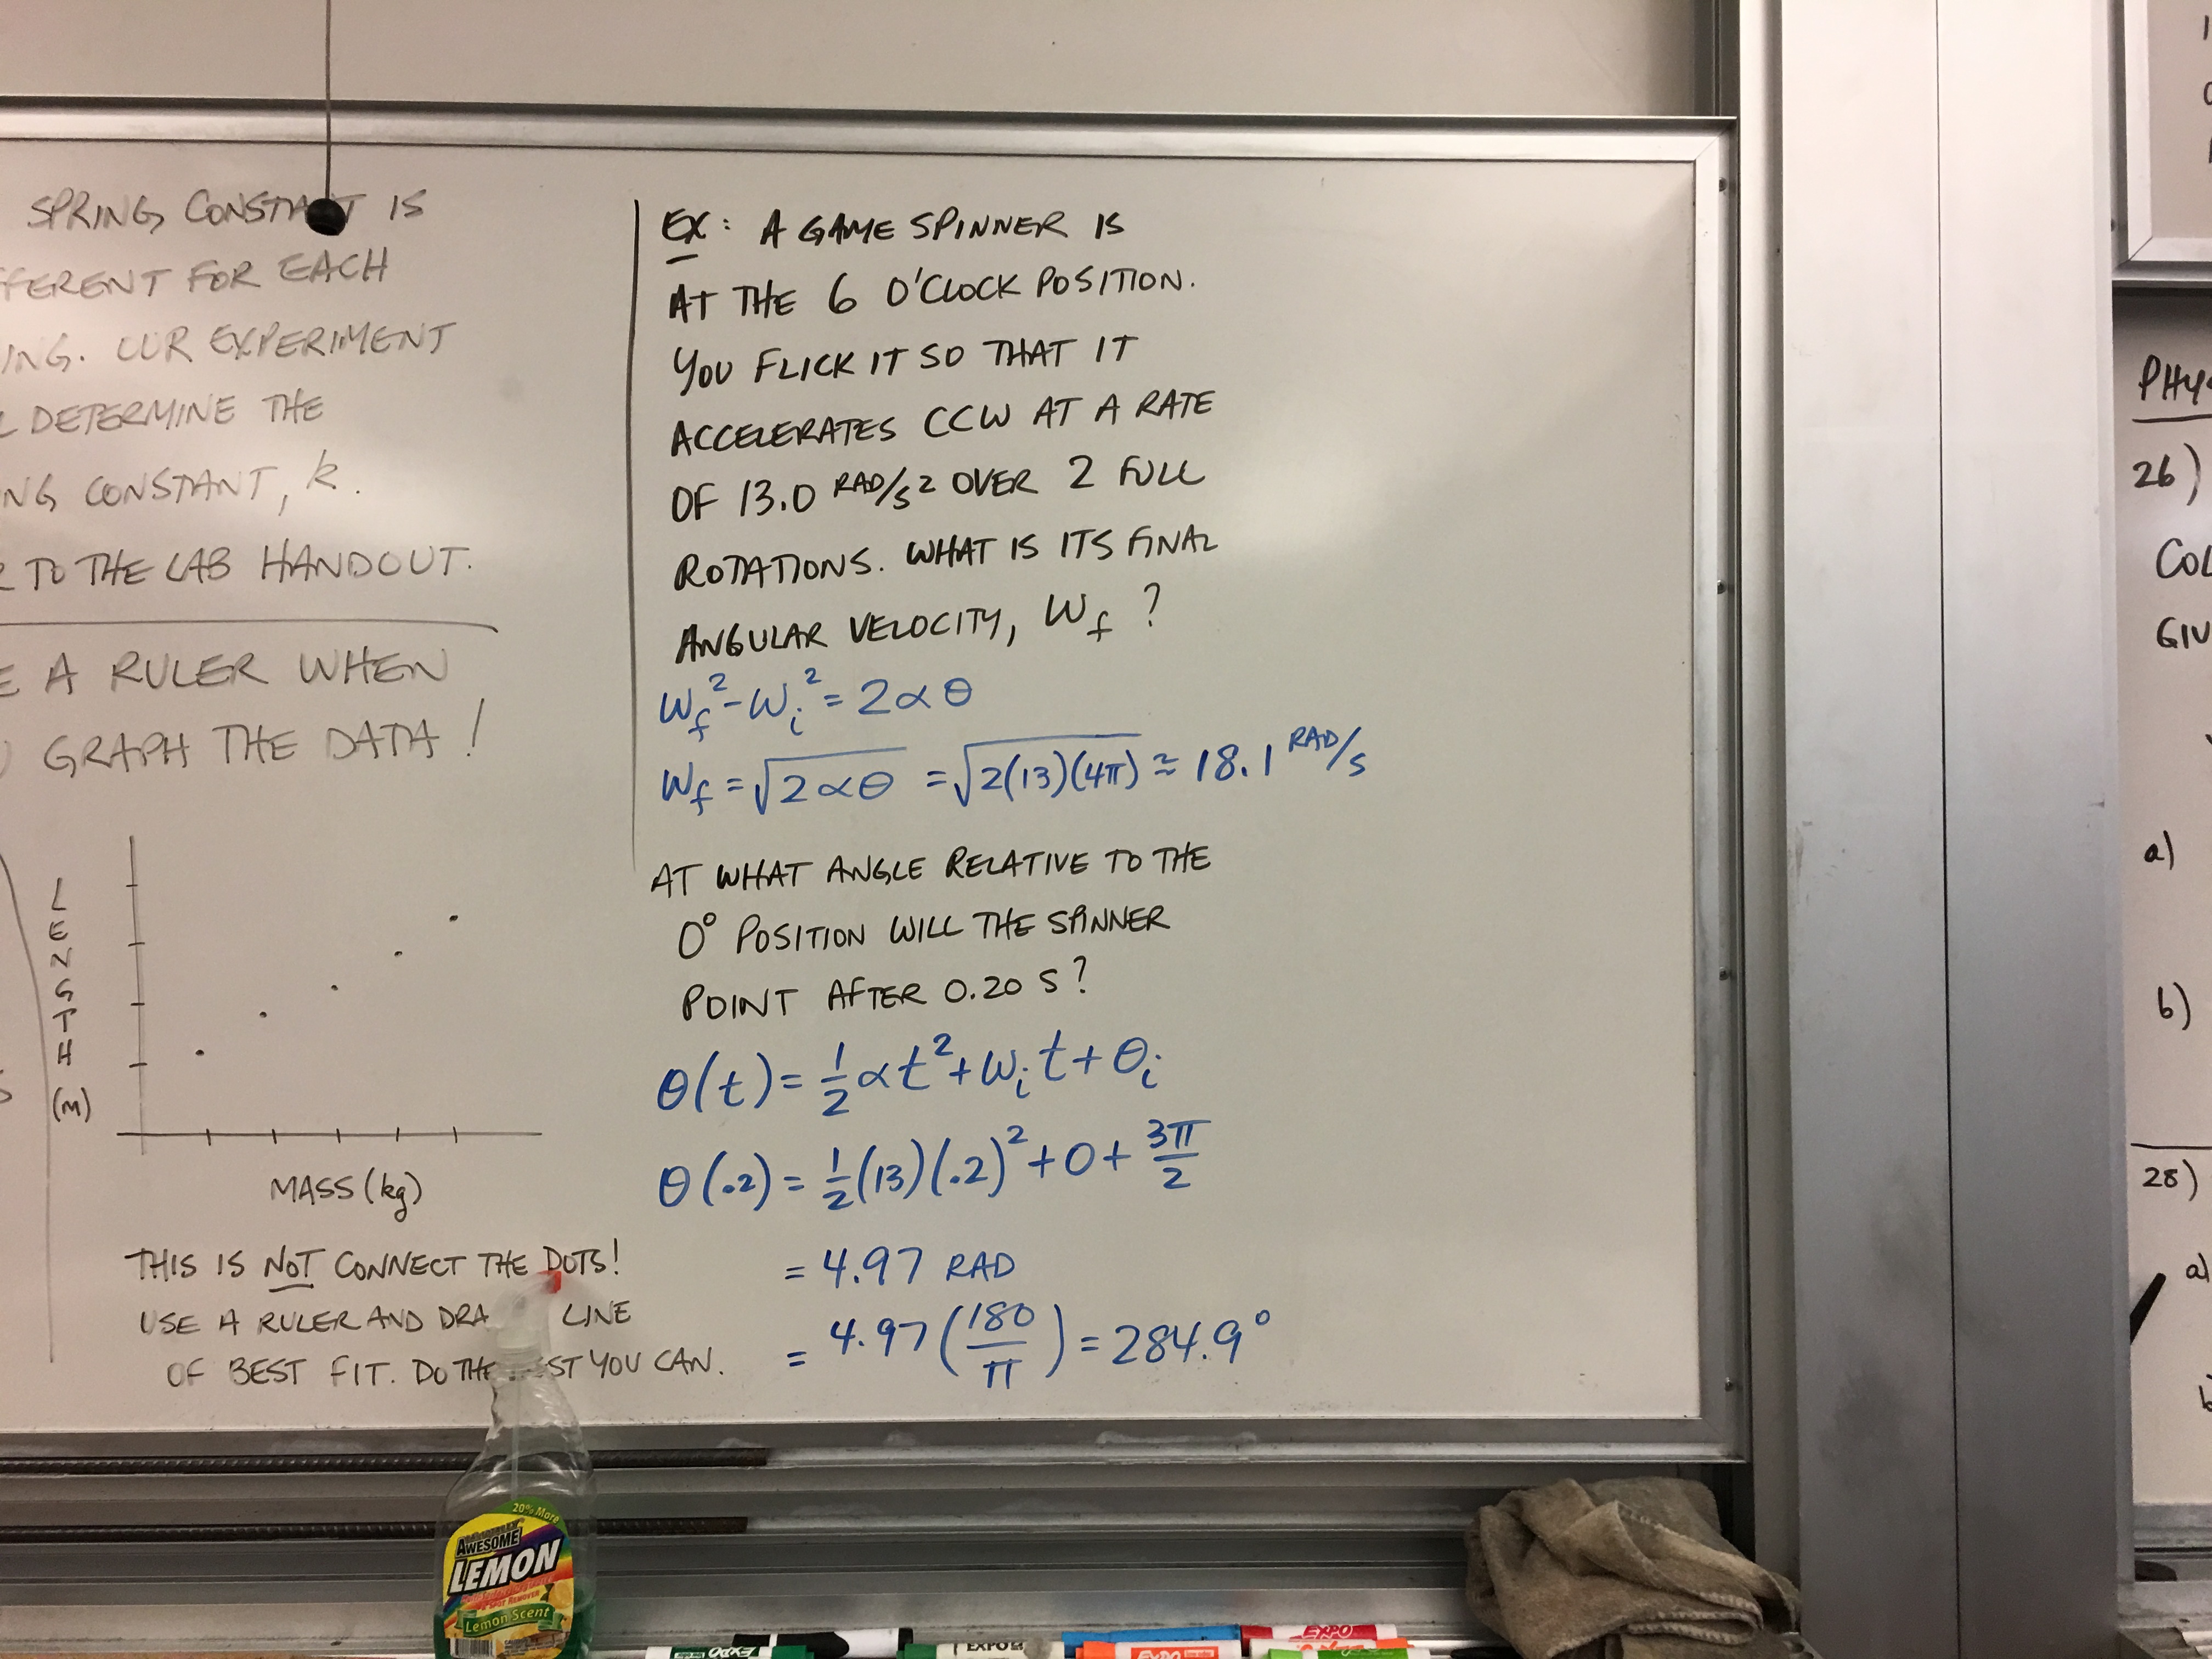 SPRING CONSTANT IS
FFERENT FOR EACH
ING. OUR EXPERIMENT
L DETERMINE THE
NG CONSTANT, k.
R TO THE LAB HANDOUT.
E A RULER WHEN
GRAPH THE DATA!
LENGTH
(M)
MASS (kg)
THIS IS NOT CONNECT THE DOTS!
USE A RULER AND DRA LINE
OF BEST FIT. DO THE ST YOU CAN.
EX: A GAME SPINNER IS
AT THE 6 O'CLOCK POSITION.
YOU FLICK IT SO THAT IT
ACCELERATES CCW AT A RATE
OF 13.0 RAD/S² OVER 2 FULL
ROTATIONS. WHAT IS ITS FINAL
ANGULAR VELOCITY, ω_f ?
ω_f² - ω_i² = 2αθ
ω_f = √2αθ = √2(13)(4π) ≈ 18.1 RAD/S
AT WHAT ANGLE RELATIVE TO THE
0° POSITION WILL THE SPINNER
POINT AFTER 0.20 S?
θ(t) = 1/2 αt² + ω_i t + θ_i
θ(.2) = 1/2 (13)(.2)² + 0 + 3π/2
= 4.97 RAD
= 4.97 (180/π) = 284.9°
PHY
26)
COL
GIV
a)
b)
28)
a)
b
20% More
AWESOME
LEMON
Lemon Scent
EXPO
EXPO
EXPO
EXPO